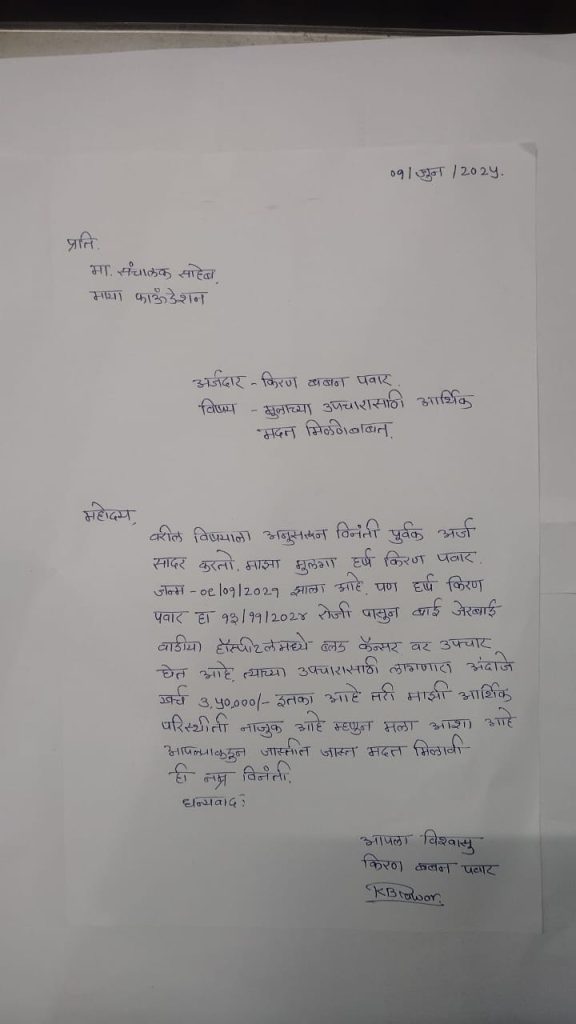 ०१/जुन/२०२५.
प्रति.
मा. संचालक साहेब,
माया फाऊंडेशन
अर्जदार - किरण बबन पवार.
विषय - मुलाच्या उपचारासाठी आर्थिक
मदत मिळणेबाबत.
महोदय,
वरील विषयाला अनुसरून विनंती पुर्वक अर्ज
सादर करतो. माझा मुलगा हर्ष किरण पवार.
जन्म - ०८/०१/२०२१ झाला आहे. पण हर्ष किरण
पवार हा १३/११/२०२४ रोजी पासुन बाई जेरबाई
वाडीया हॉस्पीटलमध्ये ब्लड कॅन्सर वर उपचार
घेत आहे. त्याच्या उपचारासाठी लागणारा अंदाजे
खर्च ३,५०,०००/- इतका आहे तरी माझी आर्थिक
परिस्थीती नाजुक आहे म्हणुन मला आशा आहे
आपल्याकडुन जास्तीत जास्त मदत मिळावी
ही नम्र विनंती.
धन्यवाद :
आपला विश्वासु
किरण बबन पवार
KBPawar.